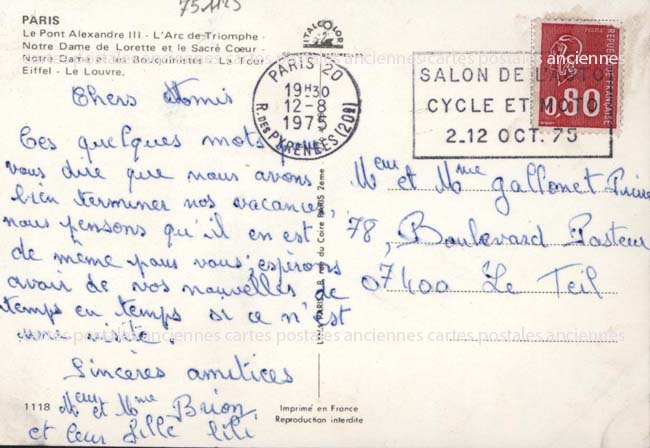 75 1145
PARIS
Le Pont Alexandre III - L'Arc de Triomphe -
Notre Dame de Lorette et le Sacré Coeur -
Notre Dame et les Bouquinistes - La Tour
Eiffel - Le Louvre.
ITALCOLOR
PARIS 20
19H30
12-8
1975
R. DES PYRENEES (20e)
SALON DE L'AUTO
CYCLE ET MOTO
2_12 OCT. 75
0,80
REPUBLIQUE FRANÇAISE
Chers Amis
Ces quelques mots pour
vous dire que nous avons
bien terminer nos vacances,
nous pensons qu'il en est
de même pour vous, espérons
avoir de vos nouvelles de
temps en temps si ce n'est
une visite.
Sincères amitiées
Meur et Mme Brion,
et leur fille lili
Meur et Mme Gallonet Pierre
78, Boulevard Pasteur
07400 Le Teil
rue du Caire PARIS 2eme
1118
Imprimé en France
Reproduction interdite
cartes postales anciennes cartes postales anciennes cartes postales anciennes